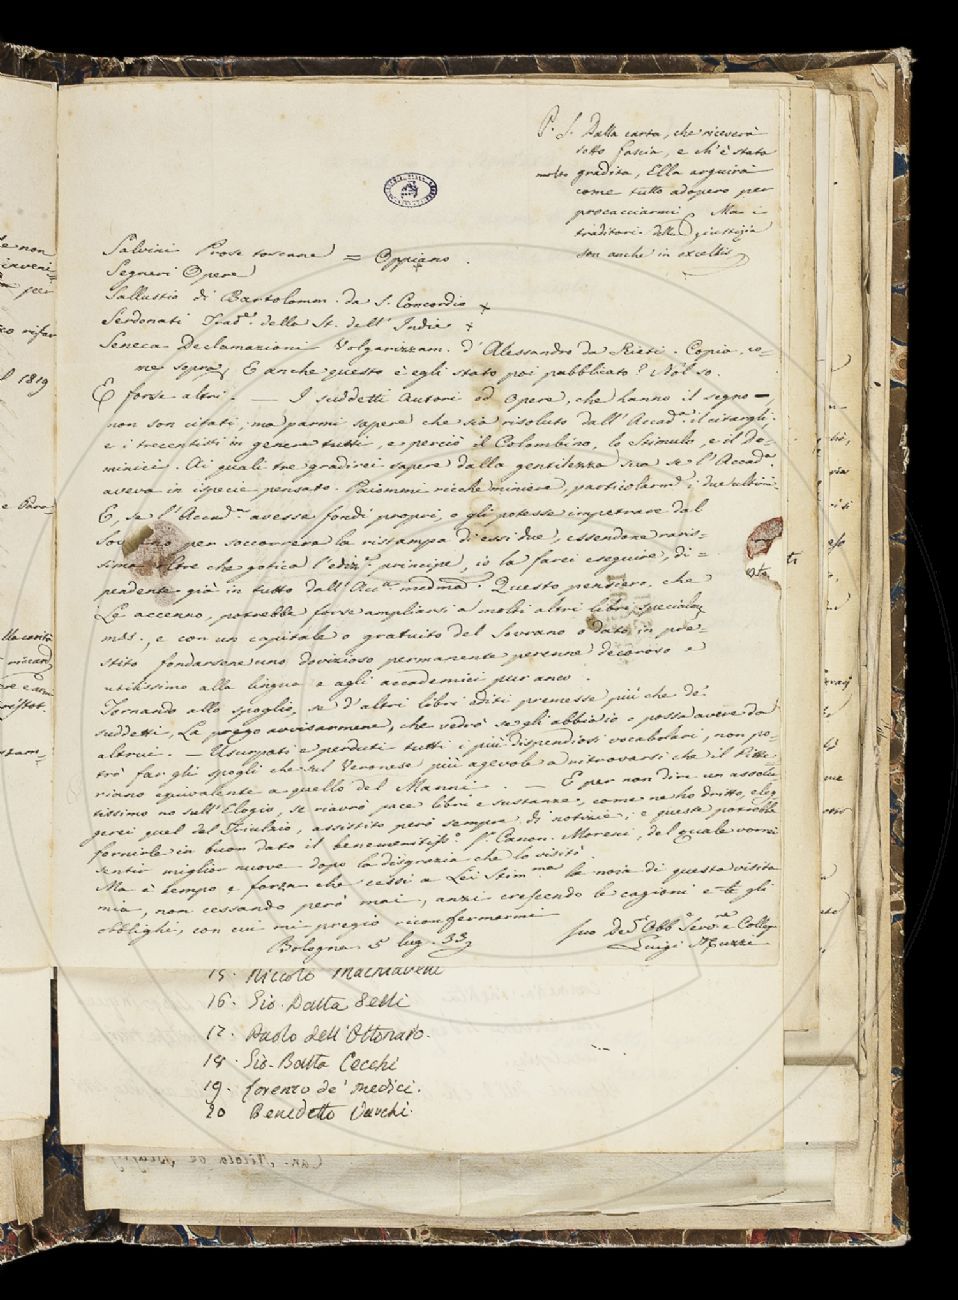 P. S. Dalla carta, che riceverà
sotto fascia, e ch'è stata
molto gradita, Ella arguirà
come tutto adopero per
procacciarmi. Ma i
traditori della giustizia
son anche in excelsis
Salvini Prose toscane = Oppiano.
Segneri Opere
Sallustio di Bartolomm. da S. Concordio +
Serdonati Trad.e della St. dell'India +
Seneca Declamazioni Volgarizzam. d'Alessandro da Rieti. Copia, co=
me sopra. E anche questo è egli stato poi pubblicato? Nol so.
E forse altri. — I suddetti autori od opere, che hanno il segno —,
non son citati, ma parmi sapere che sia risoluto dall'Accad.a il citargli,
e i trecentisti in genere tutti, e perciò il Colombino, lo Stimolo, e il Do=
minici. Ai quali tre gradirei sapere dalla gentilezza sua se l'Accad.a
aveva in ispecie pensato. Paiommi ricche miniere, particolarm.e i due ultimi.
E, se l'Accad.a avesse fondi propri, o gli potesse impetrare dal
per soccorrere la ristampa di essi due, essendone raris=
sima oltre che gotica l'ediz.e principe, io la farei eseguire, di=
pendente già in tutto dall'Acc.a medma. Questo pensiero, che
Le accenno, potrebbe forse ampliarsi a molti altri libri, specialm.
mss., e con un capitale o gratuito del Sovrano o dato in pre=
stito fondarsene uno dovizioso permanente perenne decoroso e
utilissimo alla lingua e agli accademici pur anco.
Tornando allo spoglio, se d'altri libri editi premesse più che de'
suddetti, La prego avvisarmene, che vedrò se gli abbia io o possa avere da
altrui. — Usurpati e perduti tutti i più dispendiosi vocabolari, non po=
trò far gli spogli che sul Veronese più agevole a ritrovarsi che il Pitte=
riano equivalente a quello del Manni. — E per non dire un assolu
tissimo no sull'Elogio, se riavrò pace libri e sustanze, come ne ho dritto, eleg
gerei quel del Trivulzio, assistito però sempre di notizie; e queste potrebbe
fornirle in buon dato il benemeritiss.o Sr. Canon. Moreni, del quale vorrei
sentir miglior nuove dopo la disgrazia che lo visitò.
Ma è tempo e forza che cessi a Lei Stim.ma la noia di questa visita
mia, non cessando però mai, anzi crescendo le cagioni e gli
obblighi, con cui mi pregio riconfermarmi
Bologna 5 lug. 33
suo De. Obb.o Servo e Colleg
Luigi Muzzi
15. Niccolò Machiavelli
16. Gio. Batta Gelli
17. Paolo dell'Ottonaio.
18. Gio. Batta Cecchi
19. Lorenzo de' Medici.
20 Benedetto Varchi.